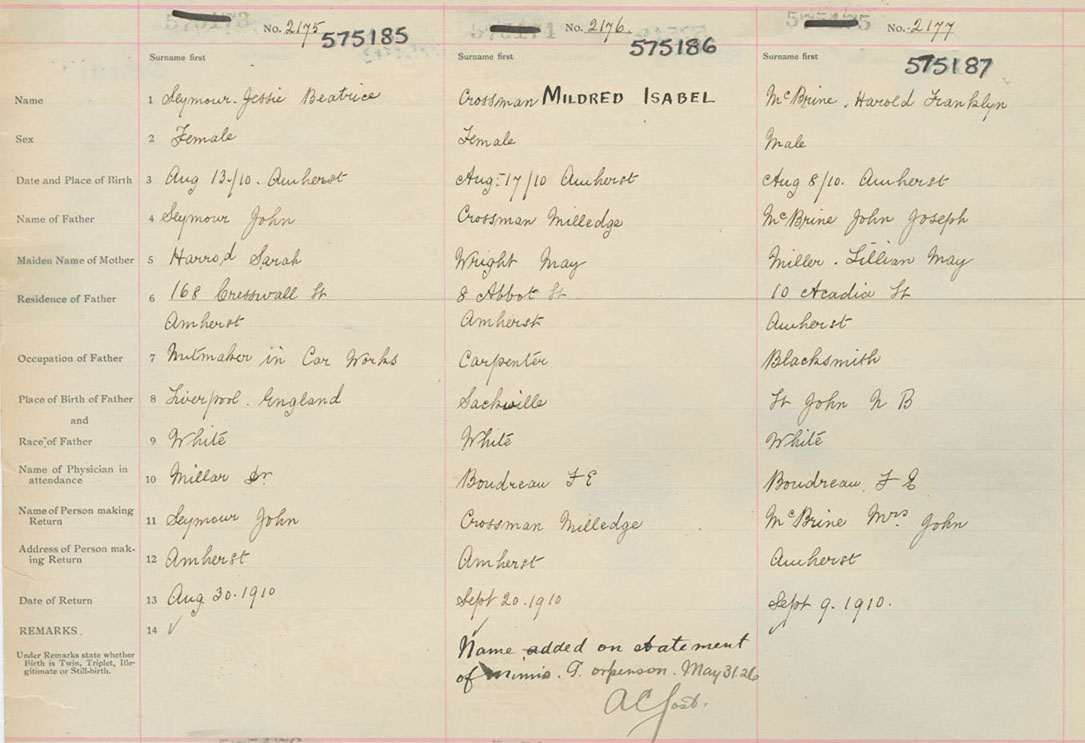 No. 2175 No. 2176. No. 2177
575185 575186 575187
Surname first Surname first Surname first
Name 1 Seymour. Jessie Beatrice Crossman MILDRED ISABEL McBrine. Harold Franklyn
Sex 2 Female Female Male
Date and Place of Birth 3 Aug 13/10. Amherst Aug-17/10 Amherst Aug 8/10. Amherst
Name of Father 4 Seymour John Crossman Milledge McBrine John Joseph
Maiden Name of Mother 5 Harrod Sarah Wright May Miller. Lillian May
Residence of Father 6 168 Cresswall St 8 Abbot St 10 Acadia St
Amherst Amherst Amherst
Occupation of Father 7 Nutmaker in Car Works Carpenter Blacksmith
Place of Birth of Father 8 Liverpool. England Sackville St John N B
and
Race of Father 9 White White White
Name of Physician in
attendance 10 Millar Dr Boudreau F E Boudreau, F E
Name of Person making
Return 11 Seymour John Crossman Milledge McBrine Mrs John
Address of Person mak-
ing Return 12 Amherst Amherst Amherst
Date of Return 13 Aug 30. 1910 Sept 20. 1910 Sept 9. 1910.
REMARKS. 14 ✓
Under Remarks state whether
Birth is Twin, Triplet, Ille-
gitimate or Still-birth.
Name added on statement
of May 31.26
A C Jost.